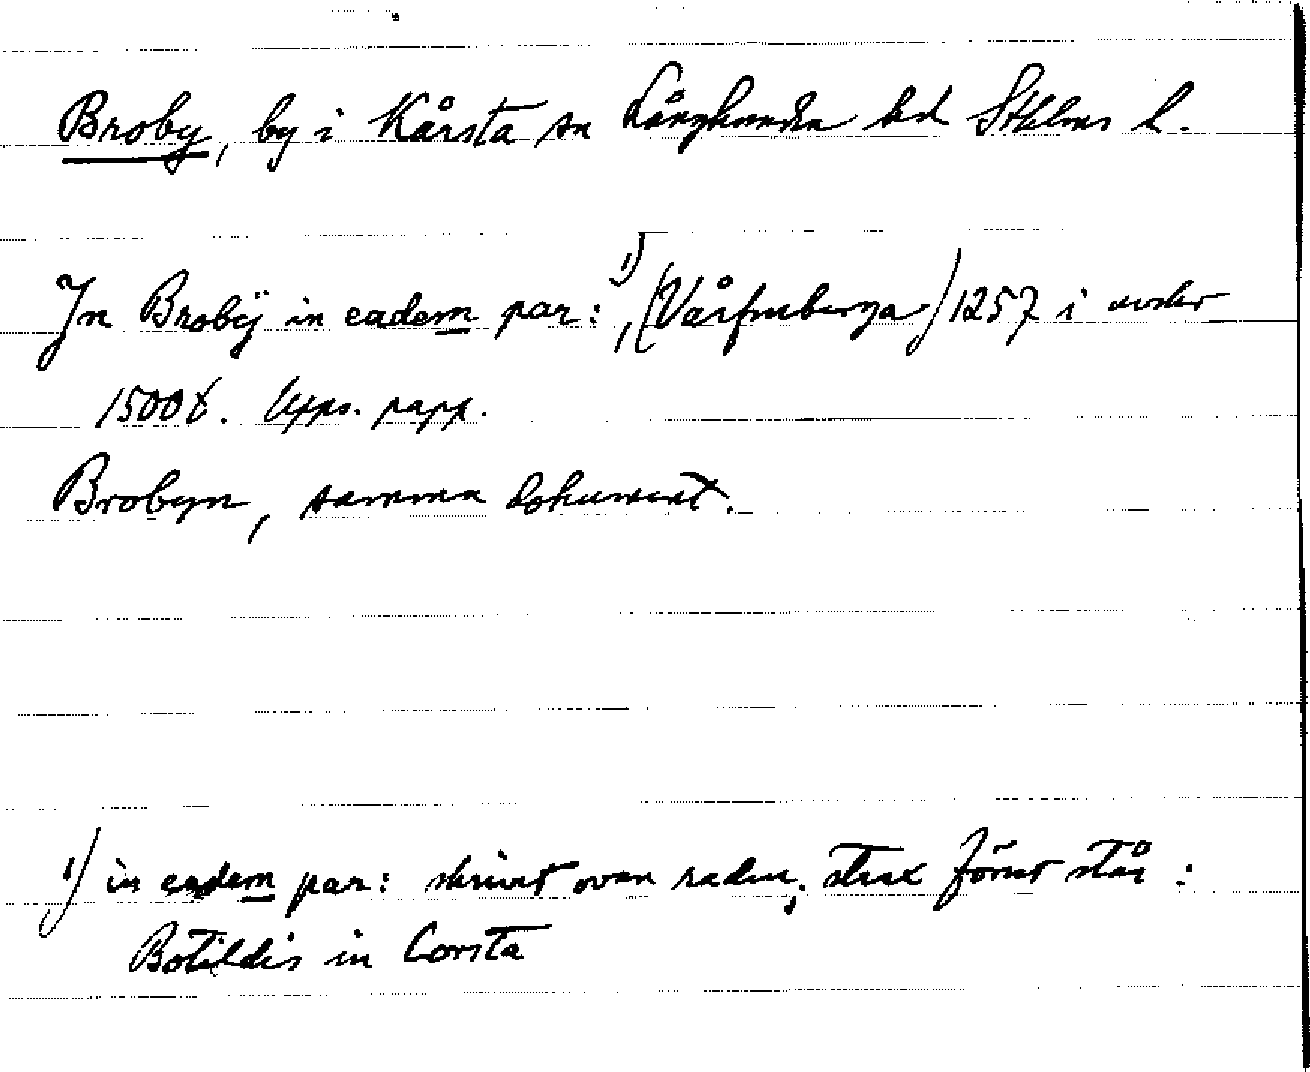 Broby, by i Kårsta sn Långhundra hd Sthlms l.
In Brobÿ in eadem par:¹⁾, (Vårfruberga) 1257 i avskr
1500t. Upps. papp.
Brobyn, samma dokument.
1) in eadem par: skrivet ovan raden, strax förut står:
Botildis in Corsta